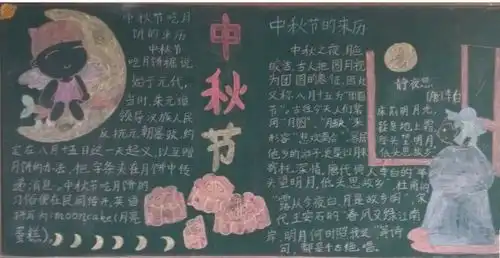 中秋节吃月
饼的来历
中秋节
吃月饼据说
始于元代,
当时,朱元璋
领导汉族人民
反抗元朝暴政,约
定在八月十五日这一天起义,以互赠
月饼的办法,把字条夹在月饼中传
递消息。中秋节吃月饼的
习俗便在民间传开,英语
拼写为:mooncake(月亮
蛋糕)。
中
秋
节
中秋节的来历
中秋之夜,月色
皎洁,古人把圆月视
为团圆的象征,因此
又称八月十五为“团圆
节”。古往今天人们常
用“月圆”、“月缺”来
形容“悲欢离合”,客居
他乡的游子更是以月来
寄托深情。唐代诗人李白的“举
头望明月,低头思故乡”、杜甫的
“露从今夜白,月是故乡明”、宋
代王安石的“春风又绿江南
岸,明月何时照我还”等诗
句,都是千古绝唱。
静夜思
唐·李白
床前明月光,
疑是地上霜。
举头望明月,
低头思故乡